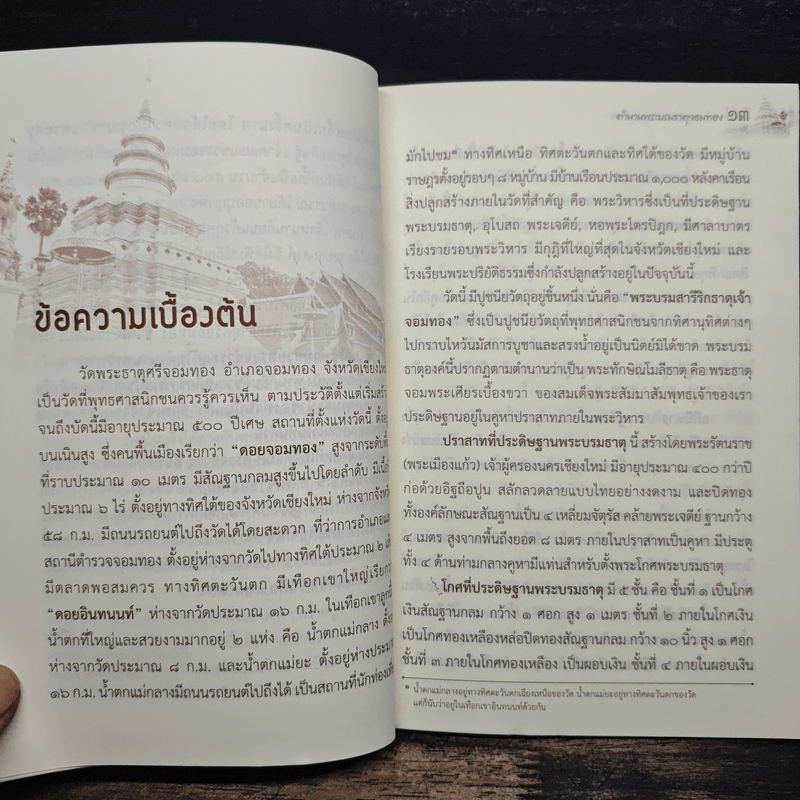 ข้อความเบื้องต้น
วัดพระธาตุศรีจอมทอง อำเภอจอมทอง จังหวัดเชียงใหม่
เป็นวัดที่พุทธศาสนิกชนควรรู้ควรเห็น ตามประวัติตั้งแต่เริ่มสร้าง
จนถึงบัดนี้มีอายุประมาณ ๕๐๐ ปีเศษ สถานที่ตั้งแห่งวัดนี้ ตั้งอยู่
บนเนินสูง ซึ่งคนพื้นเมืองเรียกว่า “ดอยจอมทอง” สูงจากระดับพื้น
ที่ราบประมาณ ๑๐ เมตร มีสัณฐานกลมสูงขึ้นไปโดยลำดับ มีเนื้อที่
ประมาณ ๖ ไร่ ตั้งอยู่ทางทิศใต้ของจังหวัดเชียงใหม่ ห่างจากจังหวัด
๕๘ ก.ม. มีถนนรถยนต์ไปถึงวัดได้โดยสะดวก ที่ว่าการอำเภอและ
สถานีตำรวจจอมทอง ตั้งอยู่ห่างจากวัดไปทางทิศใต้ประมาณ ๒ เส้น
มีตลาดพอสมควร ทางทิศตะวันตก มีเทือกเขาใหญ่เรียกว่า
“ดอยอินทนนท์” ห่างจากวัดประมาณ ๑๖ ก.ม. ในเทือกเขาลูกนี้
น้ำตกที่ใหญ่และสวยงามมากอยู่ ๒ แห่ง คือ น้ำตกแม่กลาง ตั้งอยู่
ห่างจากวัดประมาณ ๘ ก.ม. และน้ำตกแม่ยะ ตั้งอยู่ห่างประมาณ
๑๖ ก.ม. น้ำตกแม่กลางมีถนนรถยนต์ไปถึงได้ เป็นสถานที่นักท่องเที่ยว
ตำนานพระบรมธาตุจอมทอง ๑๓
มักไปชม* ทางทิศเหนือ ทิศตะวันตกและทิศใต้ของวัด มีหมู่บ้าน
ราษฎรตั้งอยู่รอบๆ ๘ หมู่บ้าน มีบ้านเรือนประมาณ ๑,๐๐๐ หลังคาเรือน
สิ่งปลูกสร้างภายในวัดที่สำคัญ คือ พระวิหารซึ่งเป็นที่ประดิษฐาน
พระบรมธาตุ, อุโบสถ พระเจดีย์, หอพระไตรปิฎก, มีศาลาบาตร
เรียงรายรอบพระวิหาร มีกุฎิที่ใหญ่ที่สุดในจังหวัดเชียงใหม่ และ
โรงเรียนพระปริยัติธรรมซึ่งกำลังปลูกสร้างอยู่ในปัจจุบันนี้
วัดนี้ มีปูชนียวัตถุอยู่ชิ้นหนึ่ง นั่นคือ “พระบรมสารีริกธาตุเจ้า
จอมทอง” ซึ่งเป็นปูชนียวัตถุที่พุทธศาสนิกชนจากทิศานุทิศต่างๆ
ไปกราบไหว้นมัสการบูชาและสรงน้ำอยู่เป็นนิตย์มิได้ขาด พระบรม
ธาตุองค์นี้ปรากฏตามตำนานว่าเป็น พระทักษิณโมลีธาตุ คือ พระธาตุ
จอมพระเศียรเบื้องขวา ของสมเด็จพระสัมมาสัมพุทธเจ้าของเรา
ประดิษฐานอยู่ในคูหาปราสาทภายในพระวิหาร
ปราสาทที่ประดิษฐานพระบรมธาตุ นี้ สร้างโดยพระรัตนราช
(พระเมืองแก้ว) เจ้าผู้ครองนครเชียงใหม่ มีอายุประมาณ ๔๐๐ กว่าปี
ก่อด้วยอิฐถือปูน สลักลวดลายแบบไทยอย่างงดงาม และปิดทอง
ทั้งองค์ลักษณะสัณฐานเป็น ๔ เหลี่ยมจัตุรัส คล้ายพระเจดีย์ ฐานกว้าง
๔ เมตร สูงจากพื้นถึงยอด ๘ เมตร ภายในปราสาทเป็นคูหา มีประตู
ทั้ง ๔ ด้านท่ามกลางคูหามีแท่นสำหรับตั้งพระโกศพระบรมธาตุ
โกศที่ประดิษฐานพระบรมธาตุ มี ๕ ชั้น คือ ชั้นที่ ๑ เป็นโกศ
เงินสัณฐานกลม กว้าง ๑ ศอก สูง ๑ เมตร ชั้นที่ ๒ ภายในโกศเงิน
เป็นโกศทองเหลืองหล่อปิดทองสัณฐานกลม กว้าง ๑๐ นิ้ว สูง ๑ ศอก
ชั้นที่ ๓ ภายในโกศทองเหลือง เป็นผอบเงิน ชั้นที่ ๔ ภายในผอบเงิน
* น้ำตกแม่กลางอยู่ทางทิศตะวันตกเฉียงเหนือของวัด น้ำตกแม่ยะอยู่ทางทิศตะวันตกของวัด
แต่ก็นับว่าอยู่ในเทือกเขาอินทนนท์ด้วยกัน